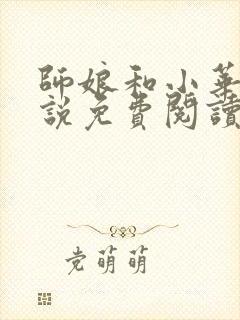 師娘和小華
說免費閱讀
党萌萌